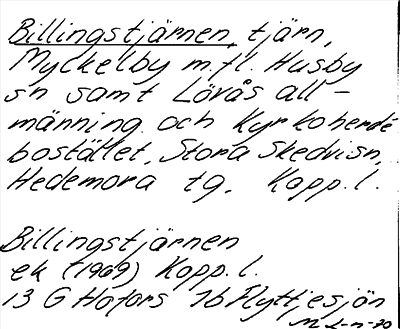 Billingstjärnen, tjärn,
Myckelby m.fl. Husby
sn samt Lövås all-
männing och Kyrkoherde
bostället, Stora Skedvi sn,
Hedemora tg, Kopp. l.
Billingstjärnen
ek (1969) Kopp. l.
13 G Hofors 7b Flyttjesjön